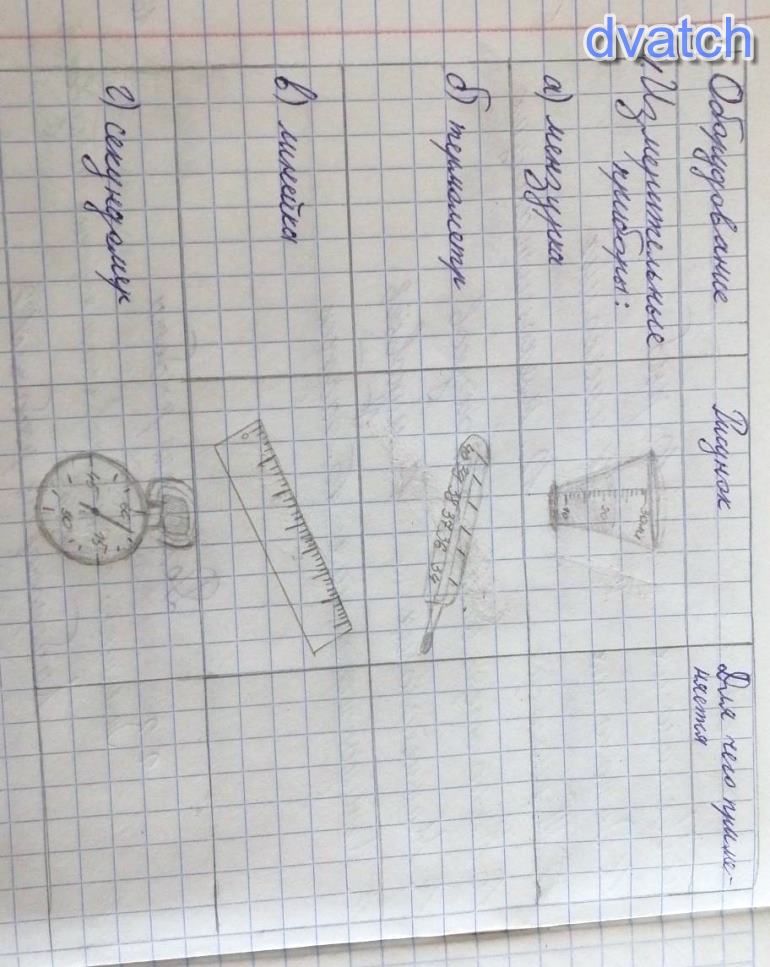 dvatch
Оборудование
Рисунок
Для чего приме-
няется
1) Измерительные
приборы:
а) мензурка
30 мл
20
10
б) термометр
в) линейка
0
г) секундомер
60
15
30
45